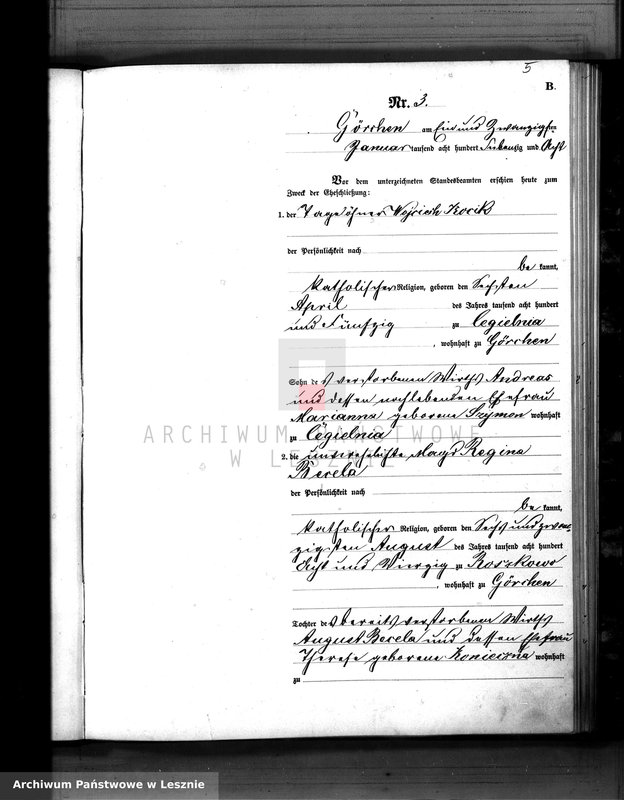 5
B.
Nr. 3.
Görchen am Ein und Zwanzigsten
Januar tausend acht hundert Siebenzig und Acht
Vor dem unterzeichneten Standesbeamten erschien heute zum
Zweck der Eheschließung:
1. der Tagelöhner Wojciech Kocik
der Persönlichkeit nach
be kannt,
katholischer Religion, geboren den Sechsten
April des Jahres tausend acht hundert
und Fünfzig zu Cegielnia
, wohnhaft zu Görchen
Sohn des verstorbenen Wirths Andreas
und dessen nochlebenden Ehefrau
Marianna geborene Szymon wohnhaft
zu Cegielnia
ARCHIWUM PAŃSTWOWE
W LESZNIE
2. die unverehelichte Magd Regina
Berela
der Persönlichkeit nach
be kannt,
katholischer Religion, geboren den Sechs und zwan-
zigsten August des Jahres tausend acht hundert
Acht und Vierzig zu Roszkowo
, wohnhaft zu Görchen
Tochter des bereits verstorbenen Wirths
August Berela und dessen Ehefrau
Therese geborene Konieczna wohnhaft
zu
Archiwum Państwowe w Lesznie